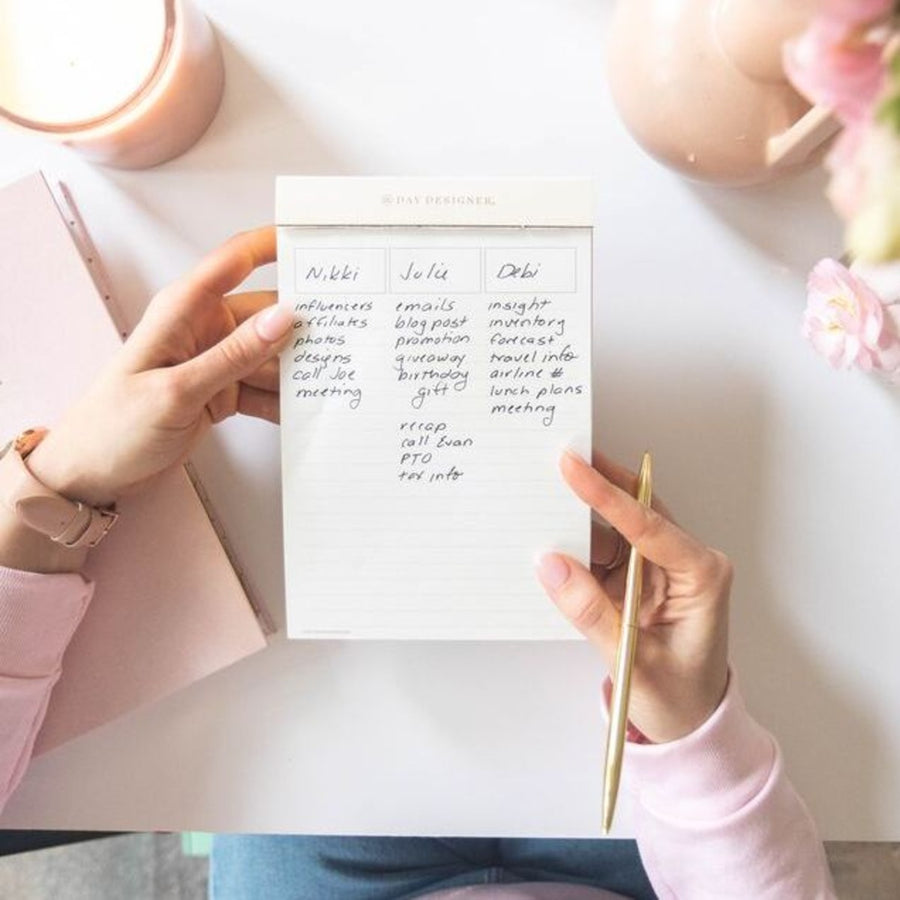 DAY DESIGNER
Nikki Julie Debi
influencers
affiliates
photos
designs
call Joe
meeting
emails
blog post
promotion
giveaway
birthday
gift
recap
call Evan
PTO
tax info
insight
inventory
forecast
travel info
airline #
lunch plans
meeting